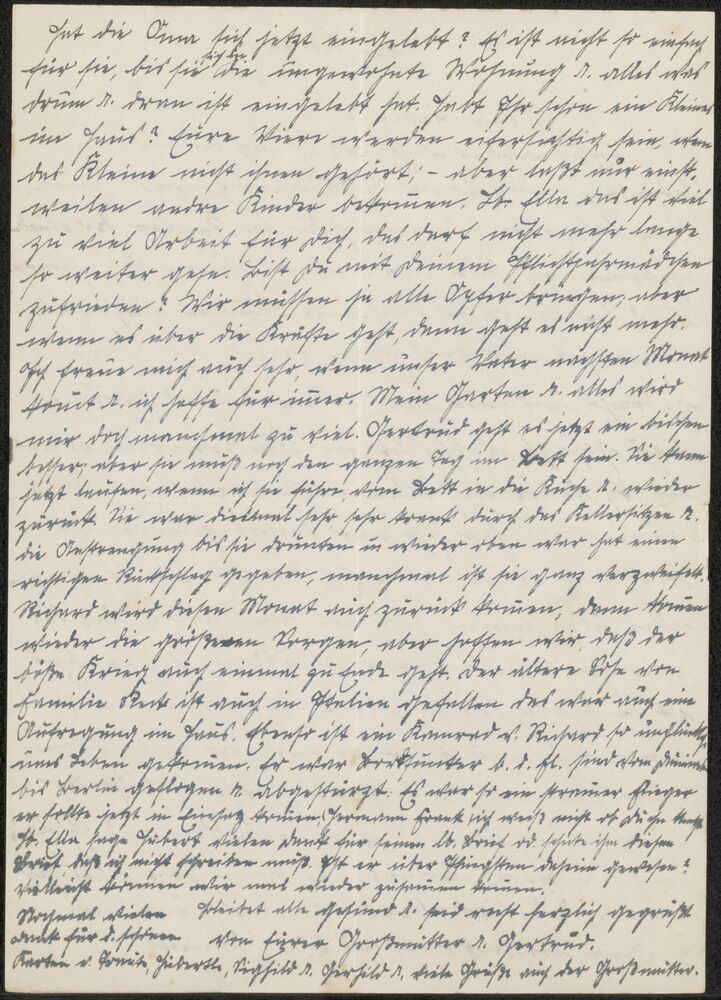 Hat die Oma sich jetzt eingelebt? Es ist nicht so einfach
für sie, bis sie sich an die ungewohnte Wohnung u. alles was
drum u. dran ist eingelebt hat. Habt Ihr schon ein Kleines
im Haus? Eure Viere werden eifersüchtig sein, wenn
das Kleine nicht ihnen gehört; - aber laßt nur einst-
weilen andre Kinder bekommen. Lb. Ella das ist viel
zu viel Arbeit für Dich, das darf nicht mehr lange
so weiter gehn. Bist Du mit Deinem Pflichtjahrmädchen
zufrieden? Wir müssen ja alle Opfer bringen; aber
wenn es über die Kräfte geht, dann geht es nicht mehr.
Ich freue mich auch sehr, wenn unser Vater nächsten Monat
kommt u. ich hoffe für immer. Mein Garten u. alles wird
mir doch manchmal zu viel. Gertrud geht es jetzt ein bischen
besser, aber sie muß noch den ganzen Tag im Bett sein. Sie kann
jetzt laufen, wenn ich sie führe, vom Bett in die Küche u. wieder
zurück. Sie war diesmal sehr sehr krank durch das Kellersitzen u.
die Anstrengung bis sie drunten u wieder oben war hat einen
richtigen Rückschlag gegeben, manchmal ist sie ganz verzweifelt.
Richard wird diesen Monat auch zurück kommen, dann kommen
wieder die größeren Sorgen, aber hoffen wir, daß der
böße Krieg auch einmal zu Ende geht. Der ältere Sohn von
Familie ist auch in Italien gefallen das war auch eine
Aufregung im Haus. Ebenso ist ein Kamrad v. Richard so unglückl.
ums Leben gekommen. Er war Bordfunker b. d. Fl. sind von
bis Berlin geflogen u. abgestürzt. Es war so ein strammer Flieger
er sollte jetzt in Einsatz kommen, Hermann Frank ich weiß nicht ob Du ihn
Lb. Ella sage Hubert vielen Dank für seinen lb. Brief od. schicke ihm diesen
Brief, daß ich nicht schreiben muß. Ist er über Pfingsten daheim gewesen?
Vielleicht können wir uns wieder zusammen kommen.
Nochmal vielen Bleibet alle gesund u. seid recht herzlich gegrüßt
Dank für d. schönen von Eurer Großmutter u. Gertrud.
Karten v. Hubertle, Sighild u. Gerhild u. viele Grüße auch der Großmutter.